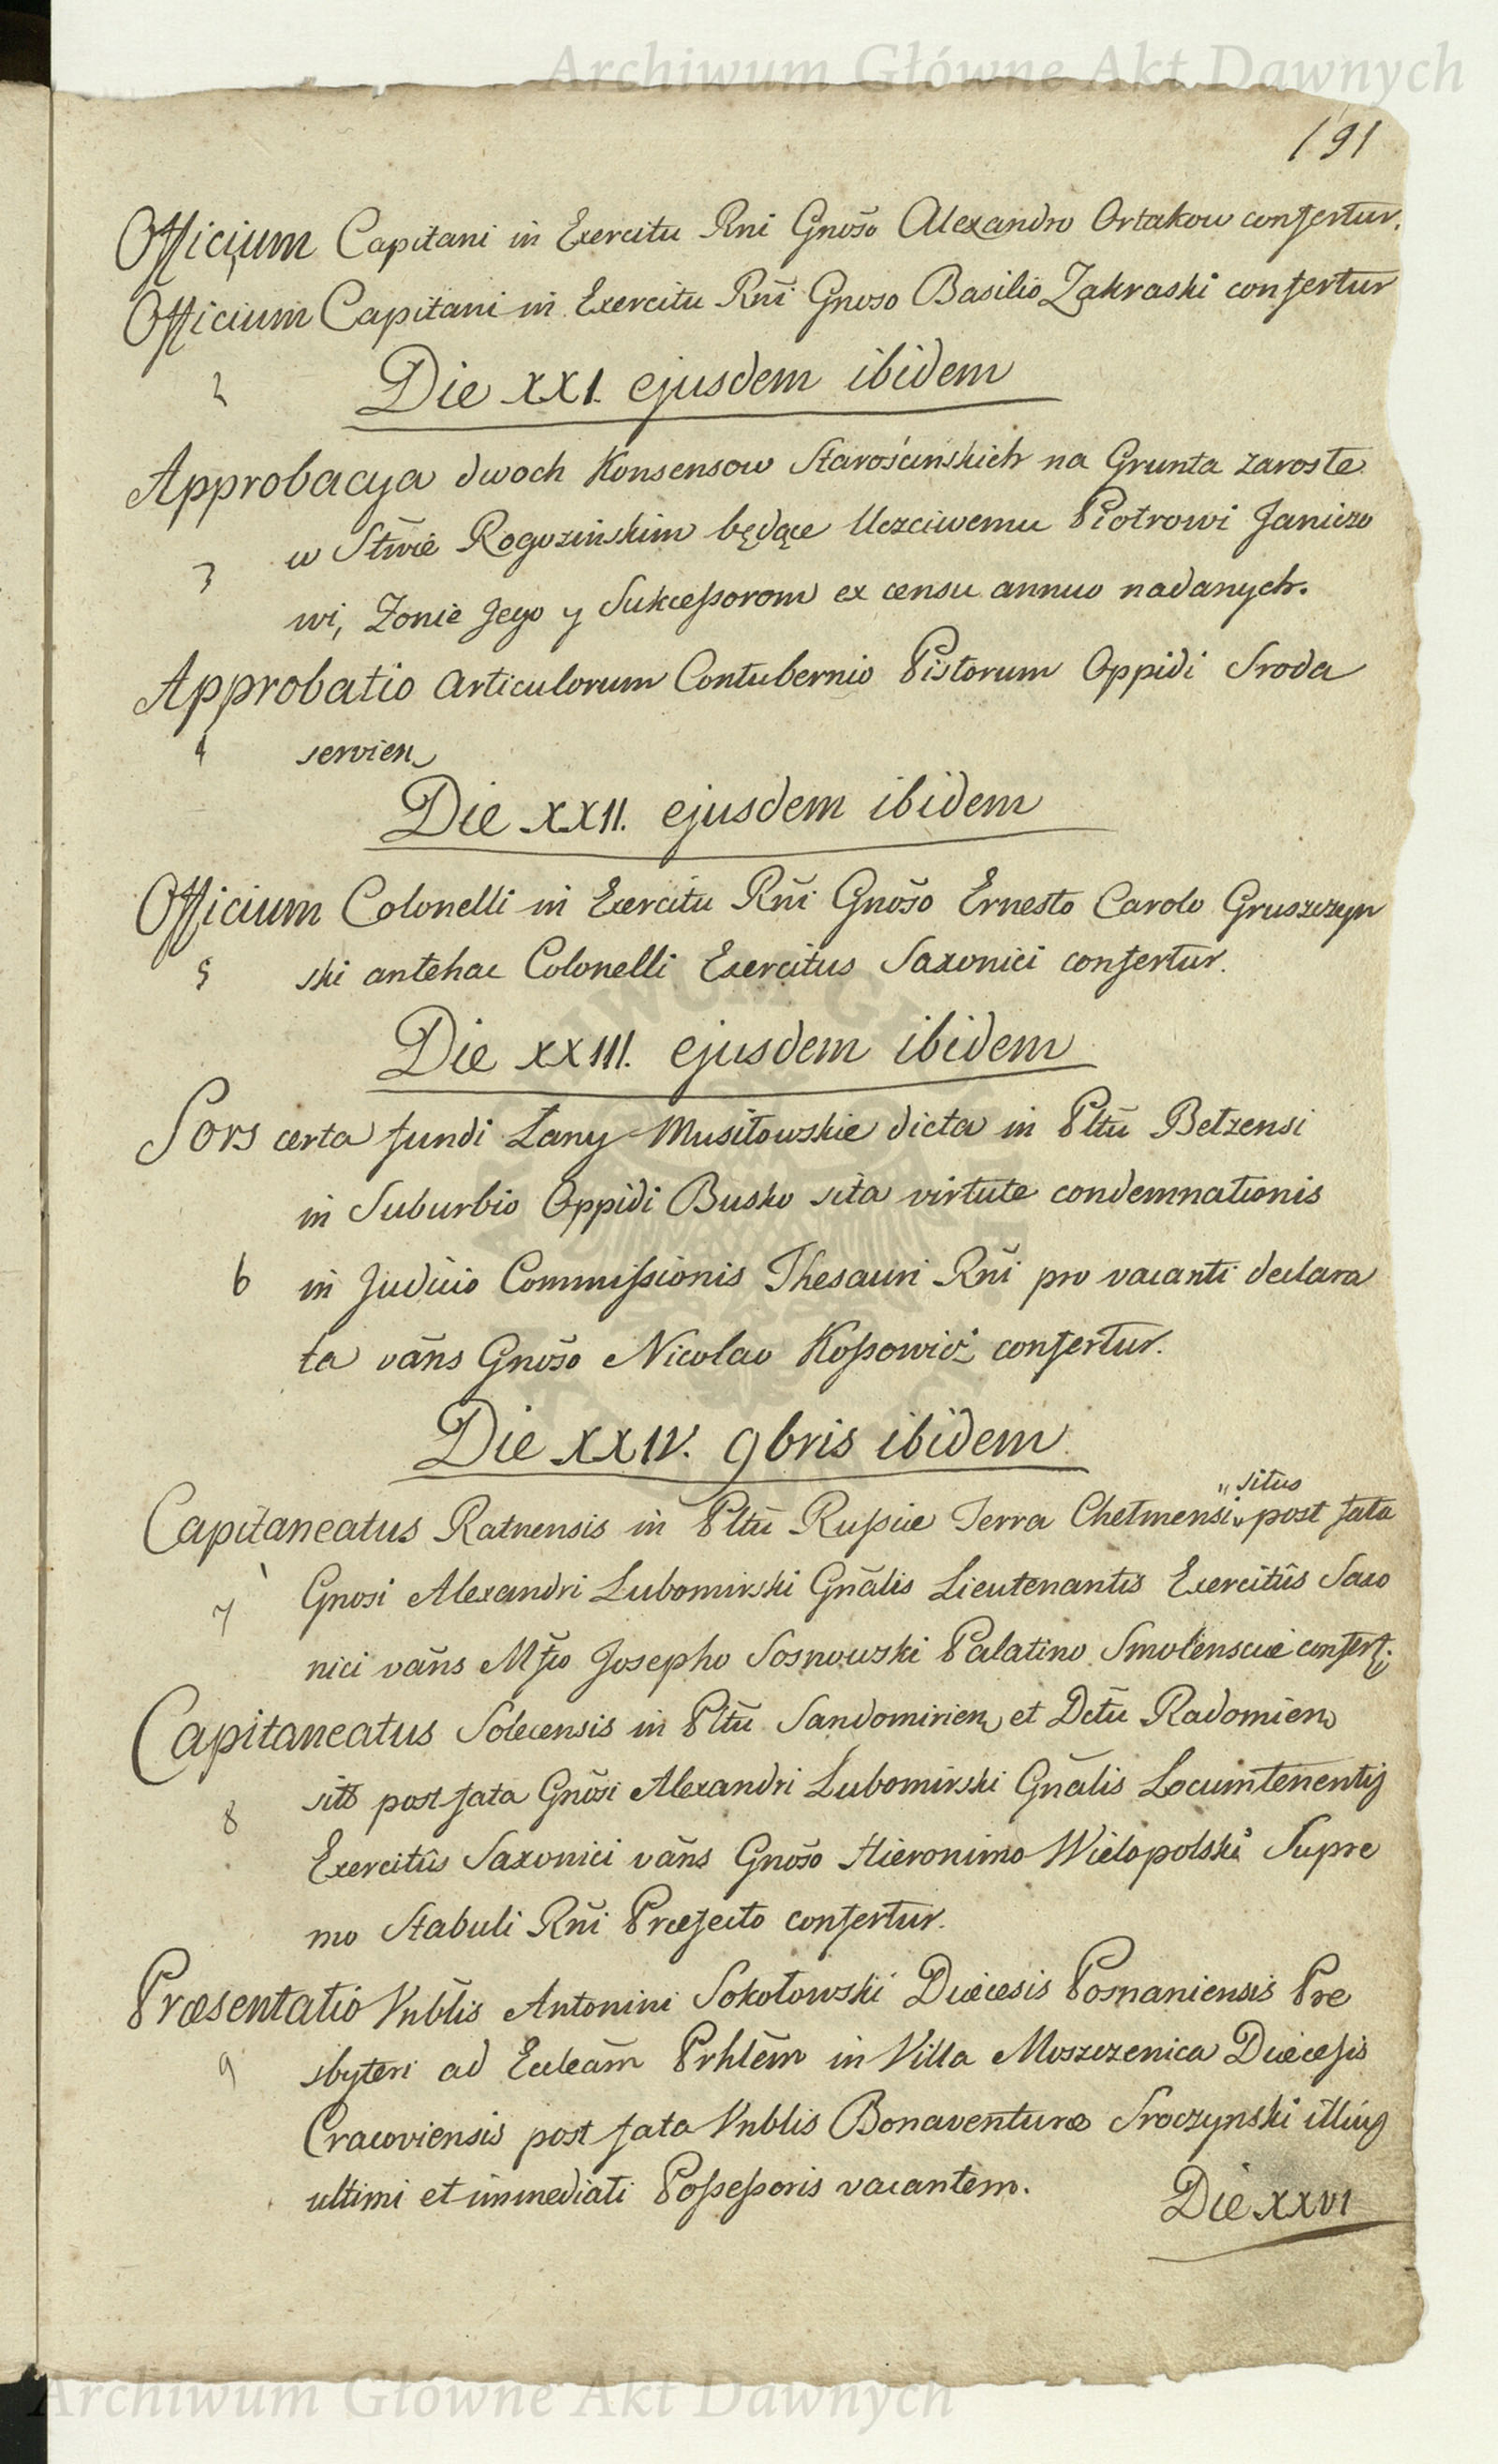 Archiwum Główne Akt Dawnych
191
Officium Capitani in Exercitu Rni Gnōso Alexandro Ortakow confertur.
1
Officium Capitani in Exercitu Rnī Gnoso Basilio Zakraski confertur
2
Die XXI. ejusdem ibidem
Approbacya dwoch Konsensow Starościnskich na Grunta zarosłe
w Stwie Rogozinskim będące Uczciwemu Piotrowi Janiczo
3
wi, Zonie Jego y Sukcessorom ex censu annuo nadanych.
Approbatio Articulorum Contubernio Pistorum Oppidi Sroda
4
servien
Die XXII. ejusdem ibidem
Officium Colonelli in Exercitu Rnī Gnōso Ernesto Carolo Gruszczyn
5
ski antehac Colonelli Exercitus Saxonici confertur.
Die XXIII. ejusdem ibidem
Sors certa fundi Łany Musiłowskie dicta in Pltū Bełzensi
in Suburbio Oppidi Busko sita virtute condemnationis
6
in Judicio Commissionis Thesauri Rnī pro vacanti declara
ta vāns Gnōso Nicolao Kossowicż confertur.
Die XXIV. 9bris ibidem
Capitaneatus Ratnensis in Pltū Russiæ Terra Chełmensi " situs " post fata
7
Gnosi Alexandri Lubomirski Gnālis Lieutenantis Exercitûs Saxo
nici vāns Mfco Josepho Sosnowski Palatino Smolensciæ confert.
Capitaneatus Solecensis in Pltū Sandomirien et Dctū Radomien
8
sits post fata Gnōsi Alexandri Lubomirski Gnālis Locumtenentis
Exercitûs Saxonici vāns Gnōso Hieronimo Wielopolski Supre
mo Stabuli Rnī Præfecto confertur.
Præsentatio Vnblīs Antonini Sokołowski Diæcesis Posnaniensis Pre
9
sbyteri ad Eccleām Prhlēm in Villa Moszczenica Diæcesis
Cracoviensis post fata Vnblis Bonaventuræ Sroczynski illius
ultimi et immediati Possessoris vacantem.
Die XXVI
Archiwum Główne Akt Dawnych